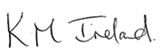 KM Ireland.